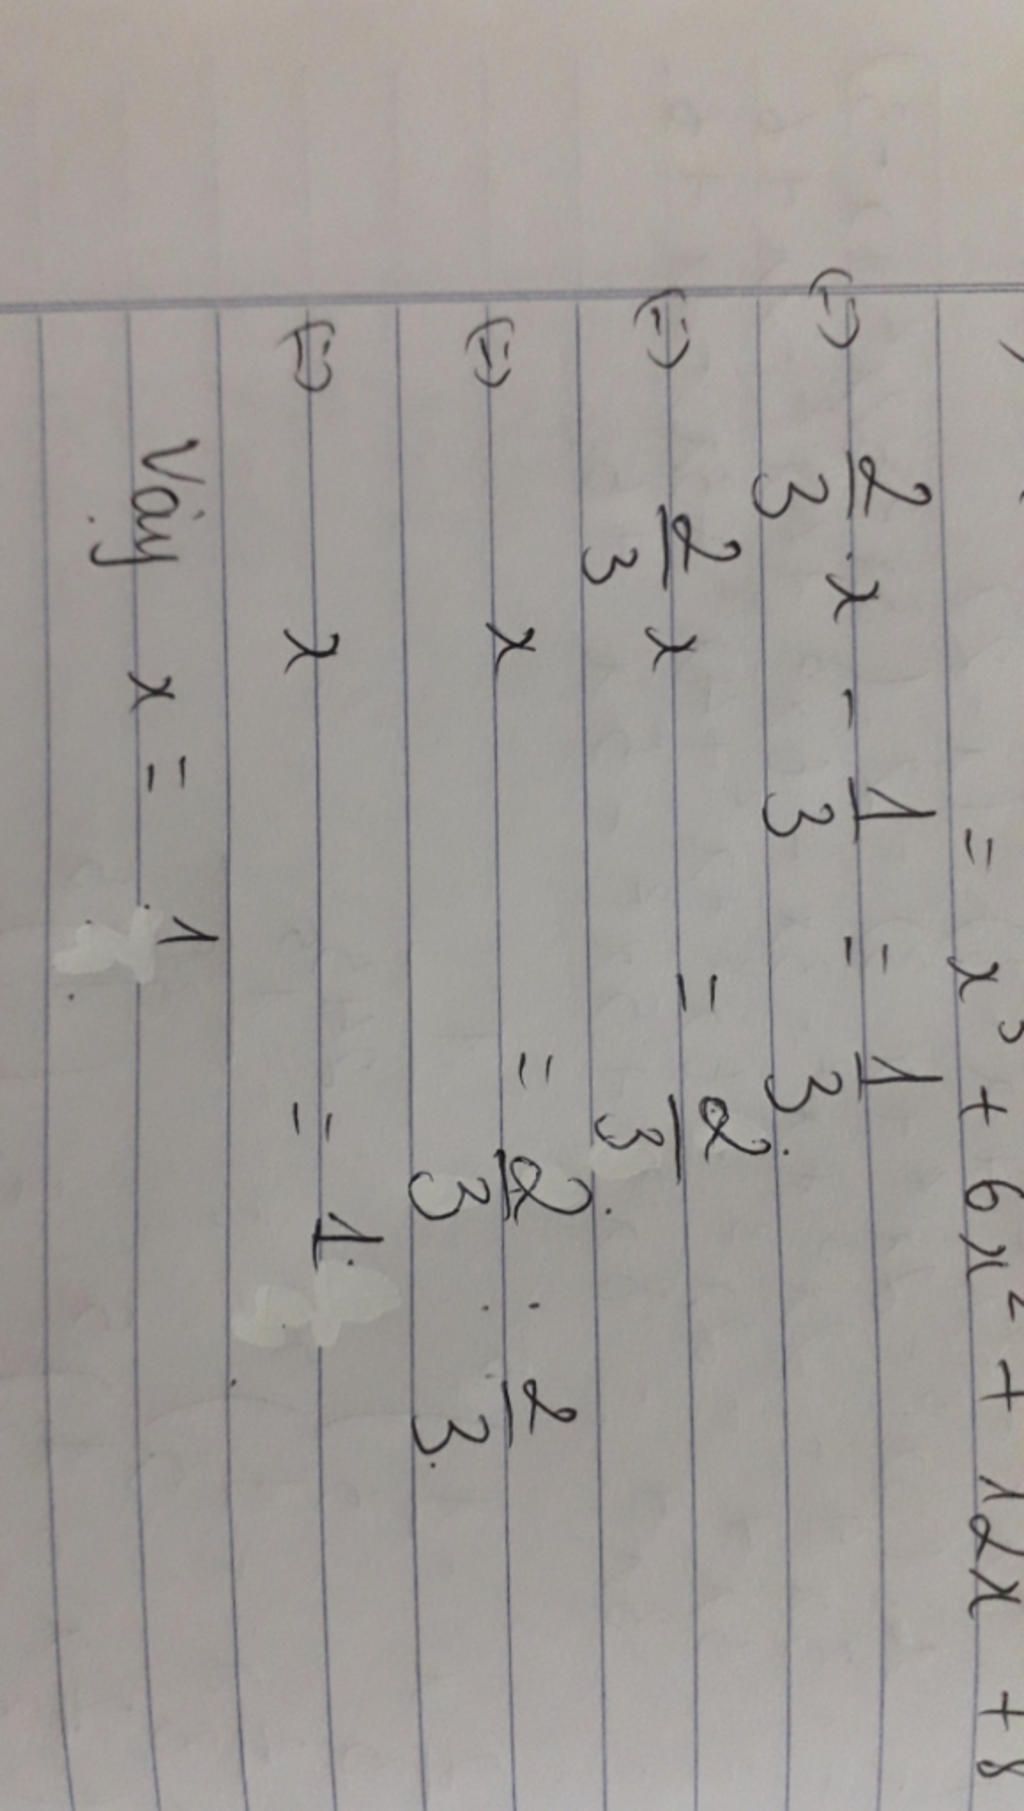 = x³ + 6x² + 12x + 8
(=) 2/3 . x - 1/3 = 1/3
(=) 2/3 x = 2/3
(=) x = 2/3 : 2/3
(=) x = 1
Vậy x = 1